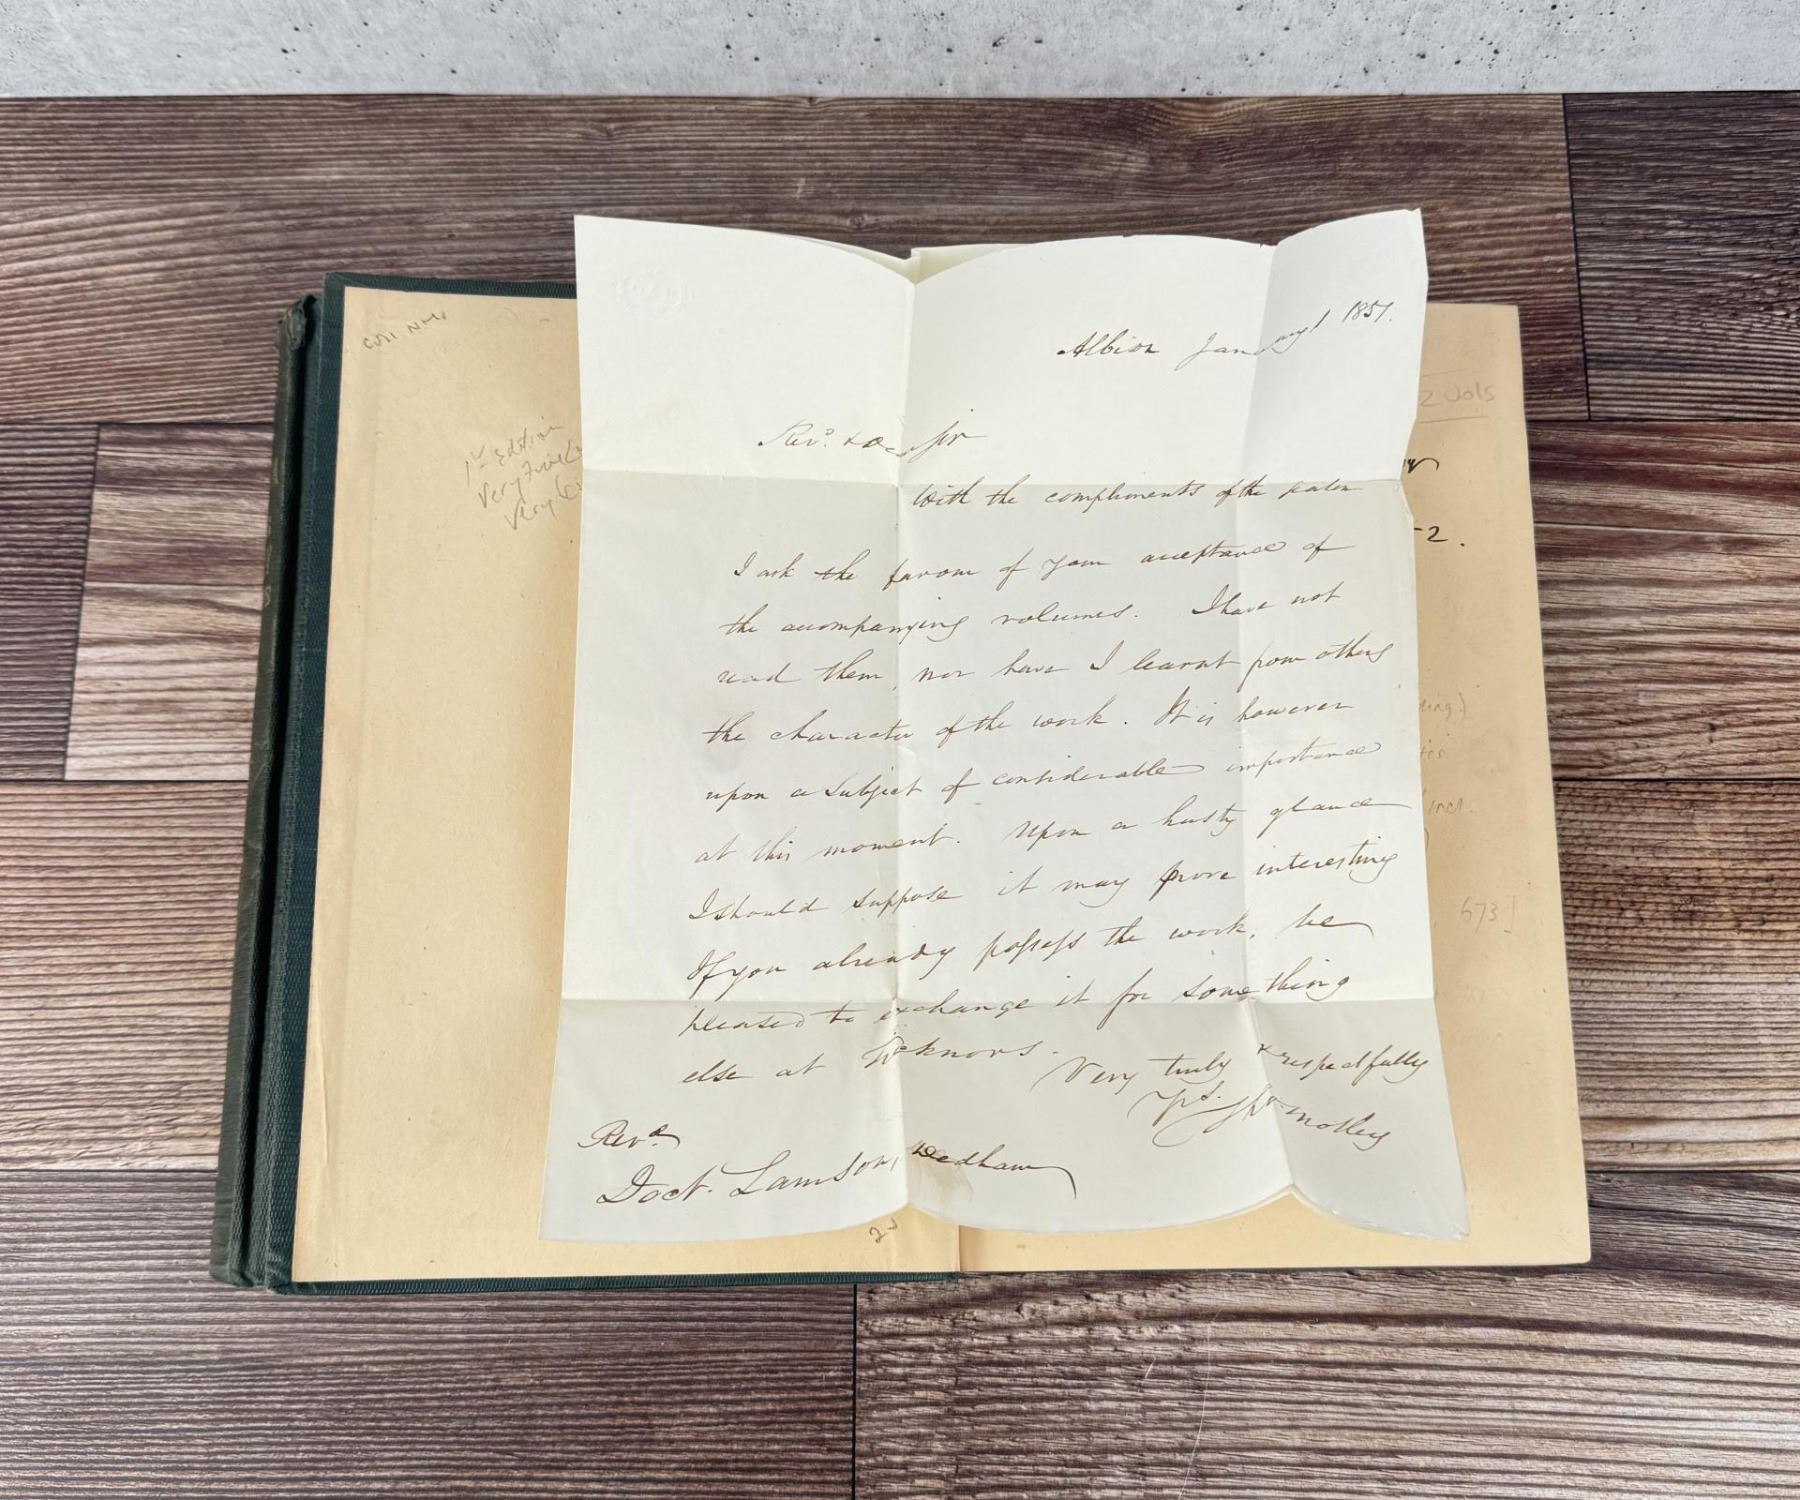 Albion January 1 1857.
Revd. & Dear Sir
With the compliments of the season
I ask the favour of your acceptance of
the accompanying volumes. I have not
read them, nor have I learnt from others
the character of the work. It is however
upon a subject of considerable importance
at this moment. Upon a hasty glance
I should suppose it may prove interesting
If you already possess the work, be
pleased to exchange it for something
else at Ticknors.
Very truly & respectfully
Yrs. Thos. Motley
Revd.
Doct. Lamson, Dedham
1st edition
Very
Very
2 Vols
-2.
ing.)
incl.
673!